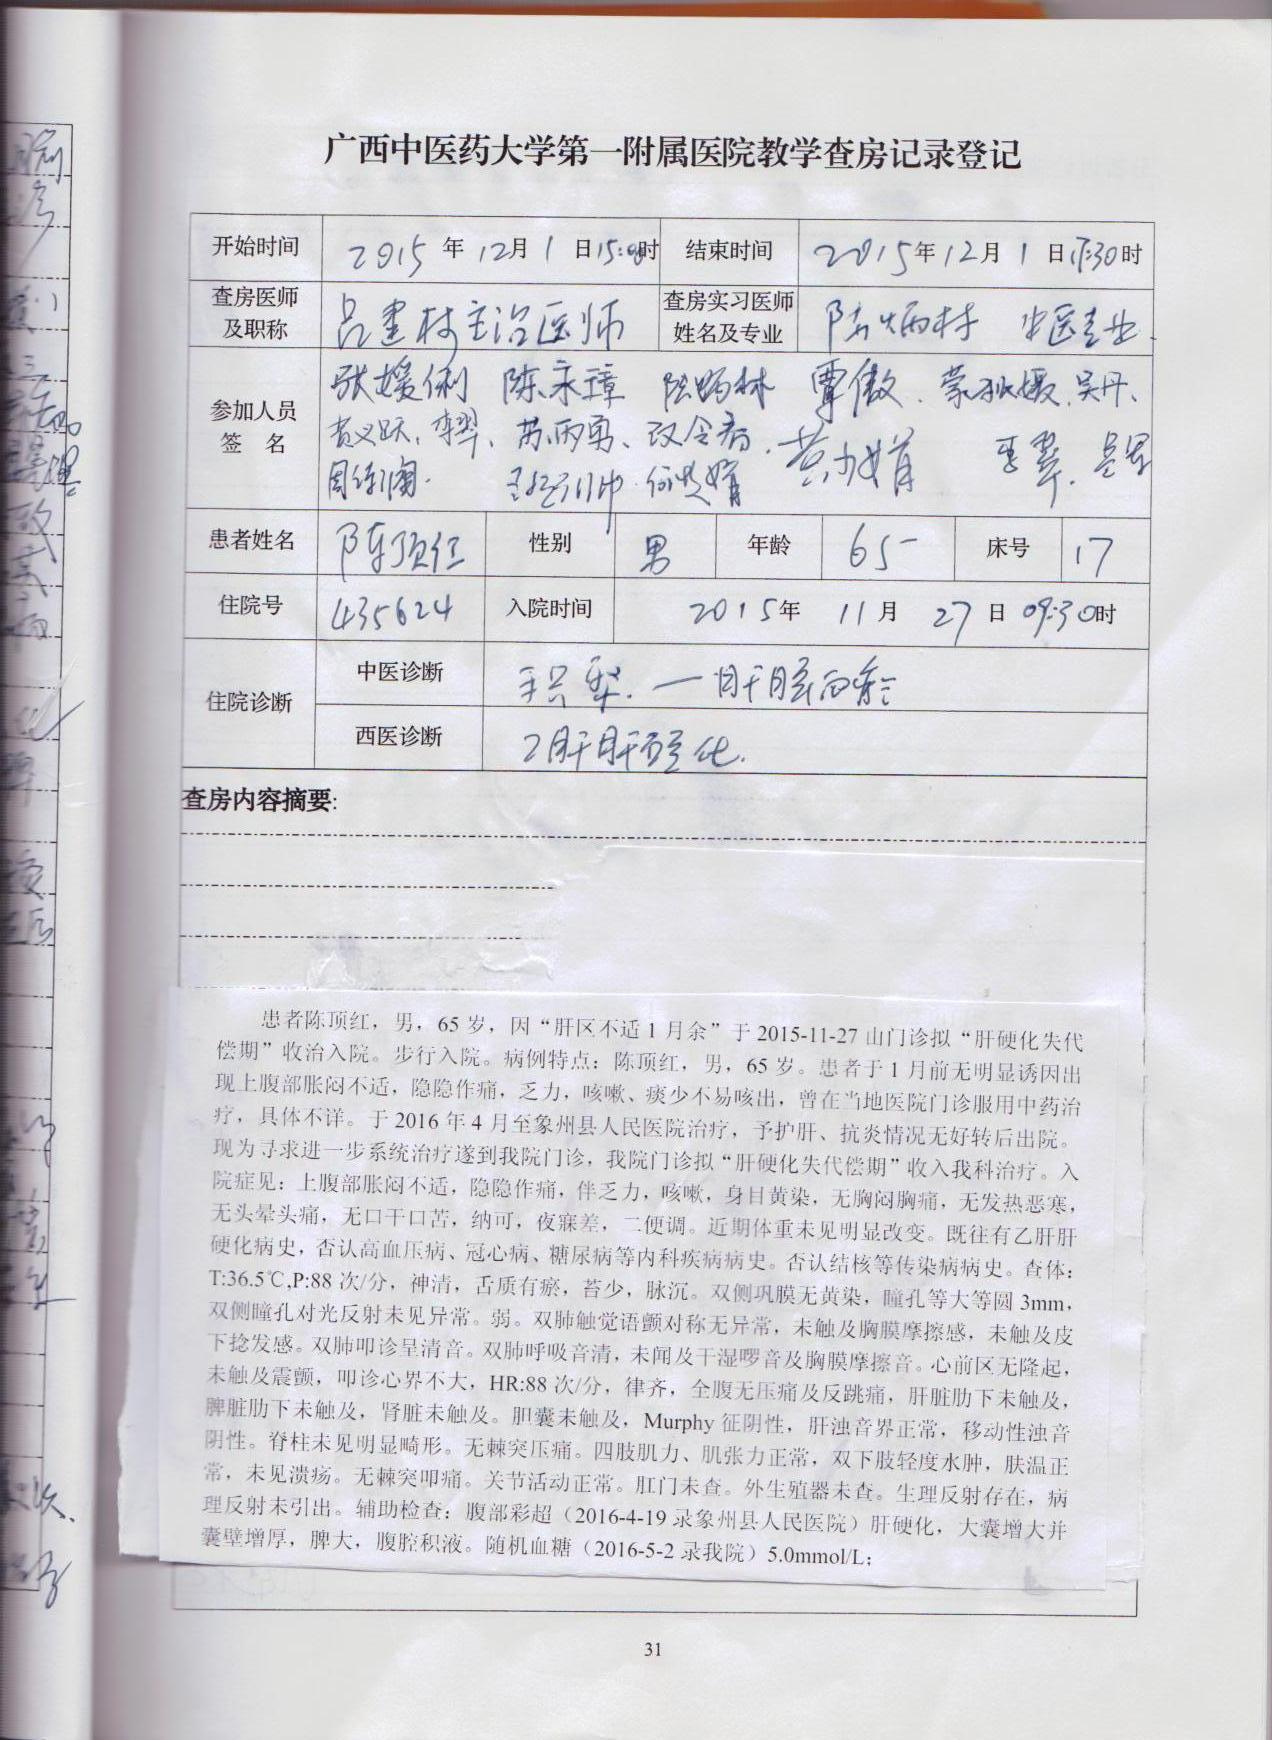 广西中医药大学第一附属医院教学查房记录登记
开始时间 2015 年 12月 1 日15:00时 结束时间 2015年12月 1 日17:30时
查房医师及职称 吕建林主治医师 查房实习医师姓名及专业 陆炳林 中医专业
参加人员签 名 张媛俐 陈永璋 陆炳林 覃傲
患者姓名 陈顶红 性别 男 年龄 65 床号 17
住院号 435624 入院时间 2015年 11月 27日 09:30时
住院诊断 中医诊断
西医诊断 乙肝肝硬化.
查房内容摘要:
患者陈顶红，男，65 岁，因“肝区不适 1 月余”于 2015-11-27 山门诊拟“肝硬化失代
偿期”收治入院。步行入院。病例特点：陈顶红，男，65 岁。患者于 1 月前无明显诱因出
现上腹部胀闷不适，隐隐作痛，乏力，咳嗽、痰少不易咳出，曾在当地医院门诊服用中药治
疗，具体不详。于 2016 年 4 月至象州县人民医院治疗，予护肝、抗炎情况无好转后出院。
现为寻求进一步系统治疗遂到我院门诊，我院门诊拟“肝硬化失代偿期”收入我科治疗。入
院症见：上腹部胀闷不适，隐隐作痛，伴乏力，咳嗽，身目黄染，无胸闷胸痛，无发热恶寒，
无头晕头痛，无口干口苦，纳可，夜寐差，二便调。近期体重未见明显改变。既往有乙肝肝
硬化病史，否认高血压病、冠心病、糖尿病等内科疾病病史。否认结核等传染病病史。查体：
T:36.5℃,P:88 次/分，神清，舌质有瘀，苔少，脉沉。双侧巩膜无黄染，瞳孔等大等圆 3mm，
双侧瞳孔对光反射未见异常。弱。双肺触觉语颤对称无异常，未触及胸膜摩擦感，未触及皮
下捻发感。双肺叩诊呈清音。双肺呼吸音清，未闻及干湿啰音及胸膜摩擦音。心前区无隆起，
未触及震颤，叩诊心界不大，HR:88 次/分，律齐，全腹无压痛及反跳痛，肝脏肋下未触及，
脾脏肋下未触及，肾脏未触及。胆囊未触及，Murphy 征阴性，肝浊音界正常，移动性浊音
阴性。脊柱未见明显畸形。无棘突压痛。四肢肌力、肌张力正常，双下肢轻度水肿，肤温正
常，未见溃疡。无棘突叩痛。关节活动正常。肛门未查。外生殖器未查。生理反射存在，病
理反射未引出。辅助检查：腹部彩超（2016-4-19 录象州县人民医院）肝硬化，大囊增大并
囊壁增厚，脾大，腹腔积液。随机血糖（2016-5-2 录我院）5.0mmol/L；
31